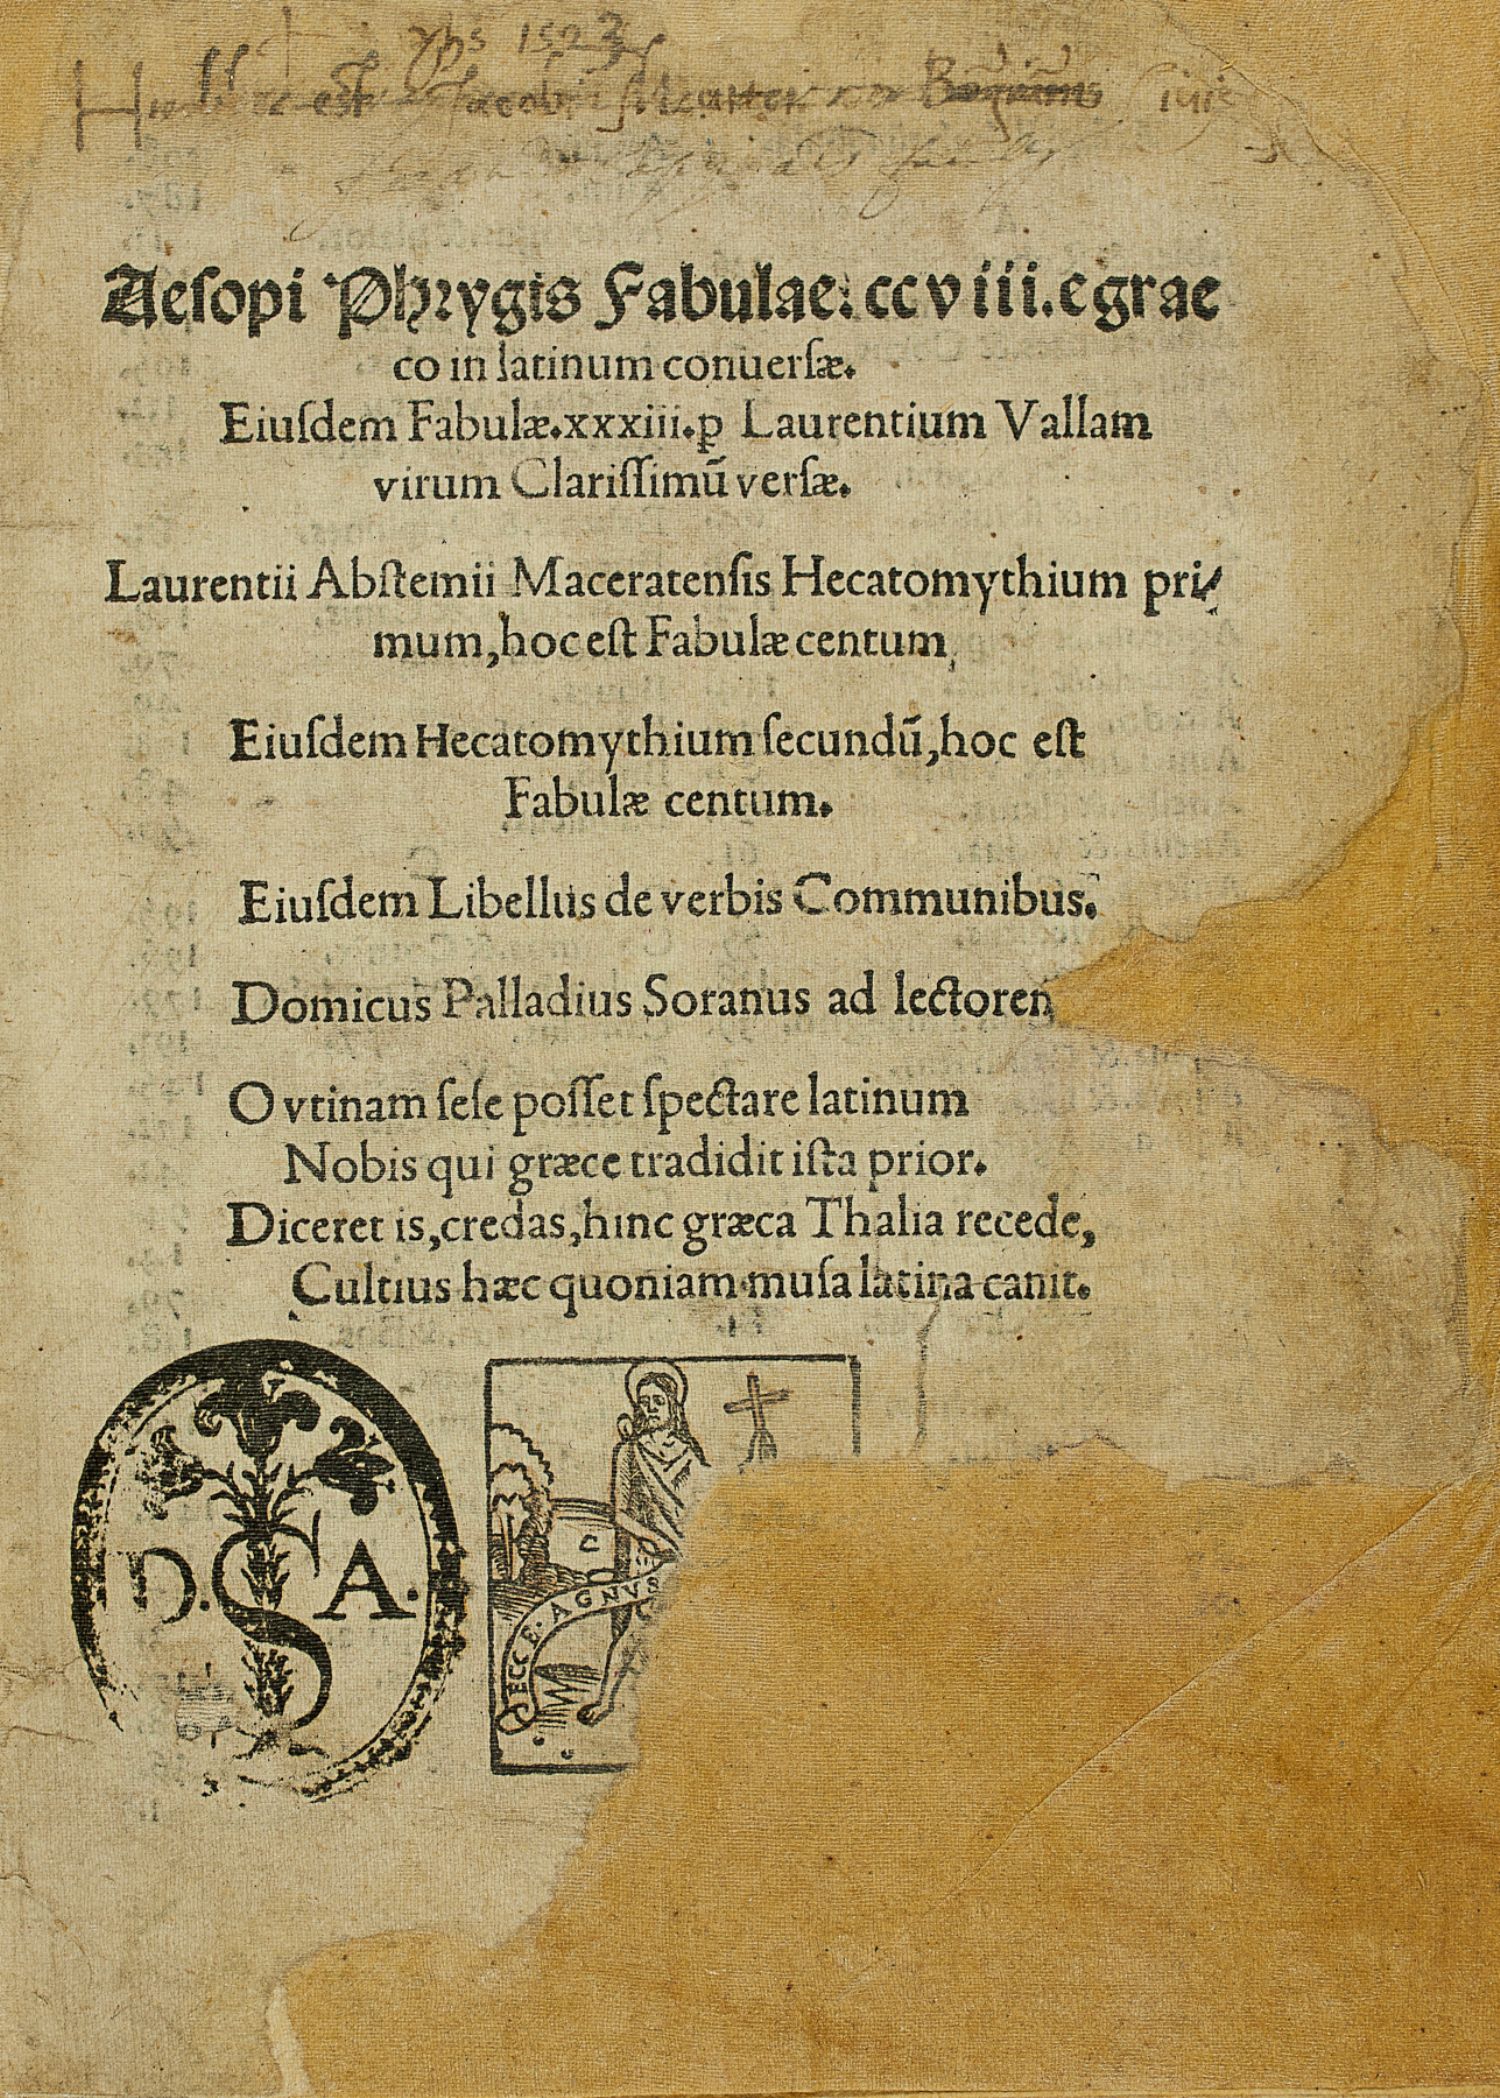 yhs 1523
est Jacobi
Aesopi Phrygis Fabulae. ccviii. e grae
co in latinum conuersæ.
Eiuſdem Fabulæ.xxxiii.ꝑ Laurentium Vallam
virum Clariſſimū verſæ.
Laurentii Abſtemii Maceratenſis Hecatomythium pri⸗
mum, hoc eſt Fabulæ centum
Eiuſdem Hecatomythium ſecundū, hoc eſt
Fabulæ centum.
Eiuſdem Libellus de verbis Communibus.
Domicus Palladius Soranus ad lectoren
O vtinam ſeſe poſſet ſpectare latinum
Nobis qui græce tradidit iſta prior.
Diceret is, credas, hinc græca Thalia recede,
Cultius hæc quoniam muſa latina canit.
D. S A.
ECCE·AGNVS